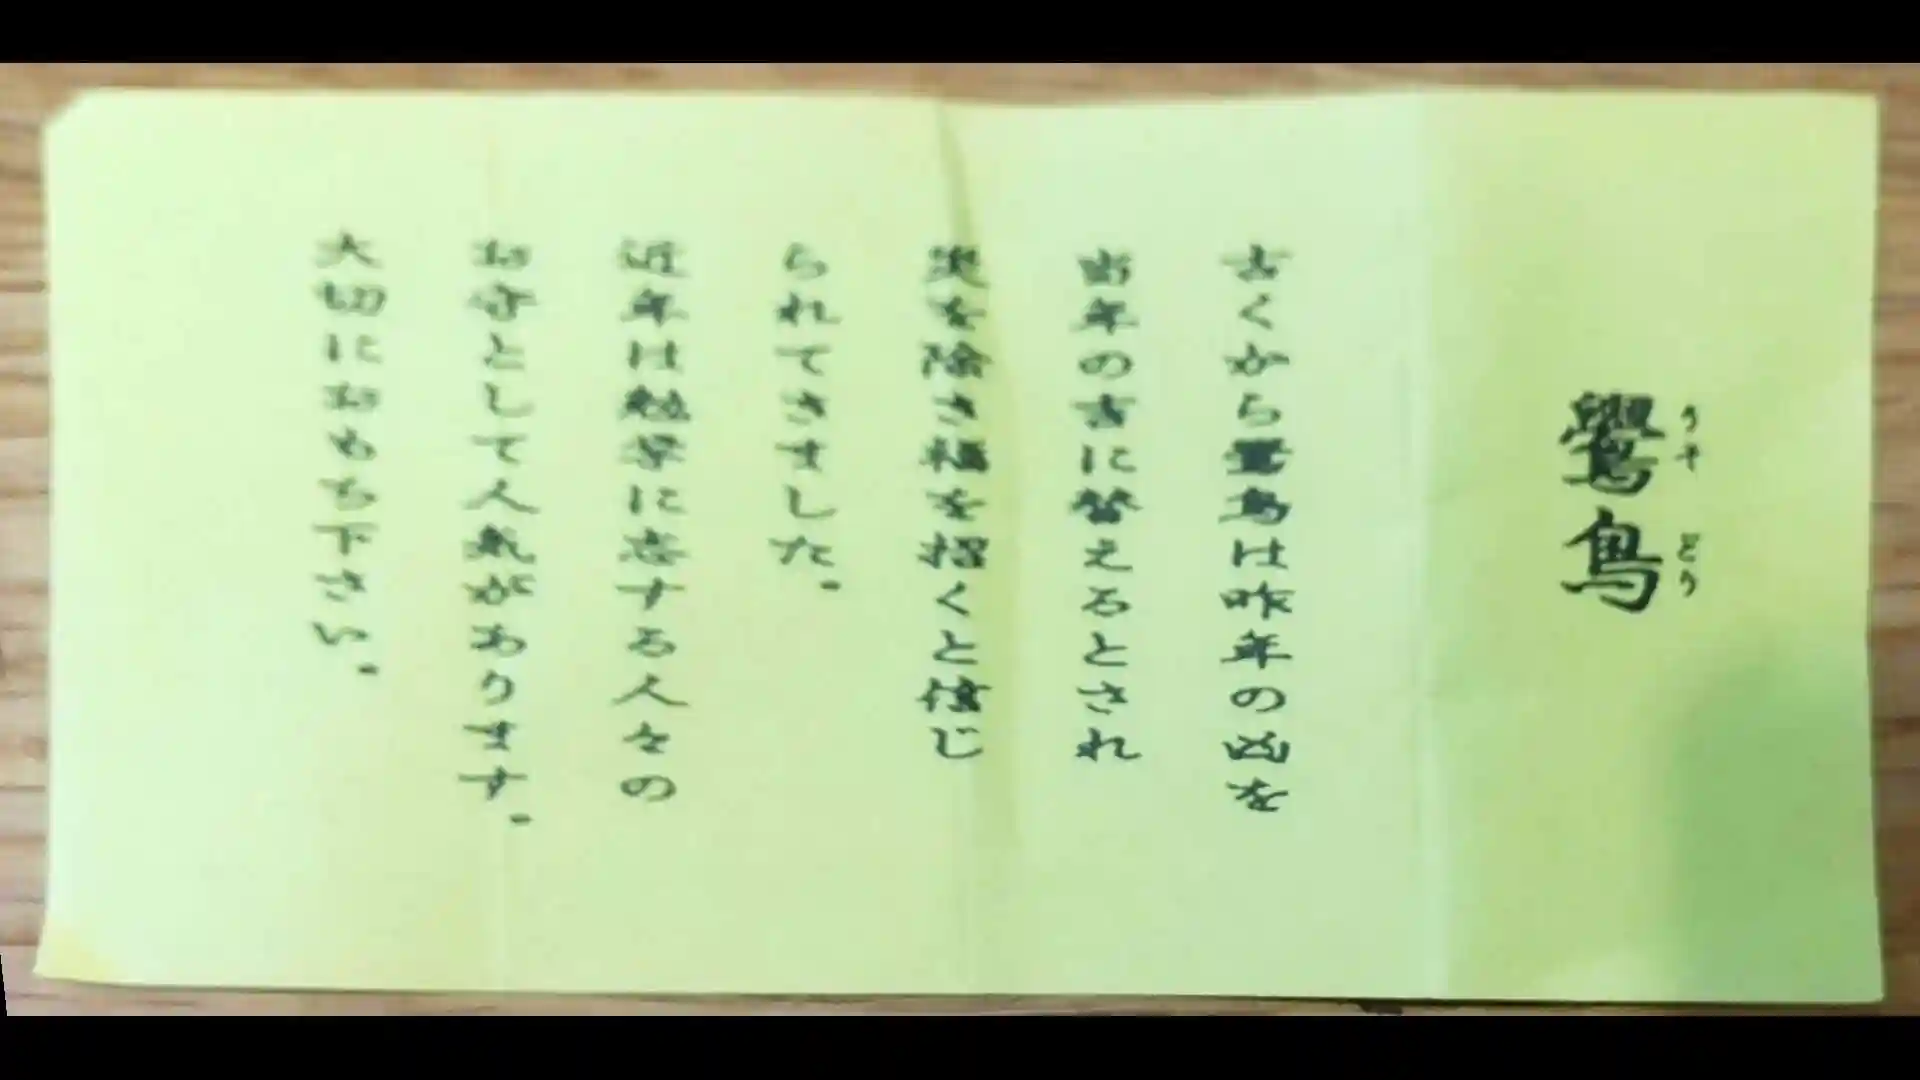 鷽鳥
うそどり
古くから鷽鳥は昨年の凶を
当年の吉に替えるとされ
災を除き福を招くと信じ
られてきました。
近年は勉学に志する人々の
お守として人気があります。
大切におもち下さい。